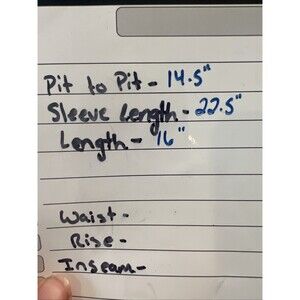 Pit to Pit - 14.5"
Sleeve Length - 22.5"
Length - 16"
Waist -
Rise -
Inseam -